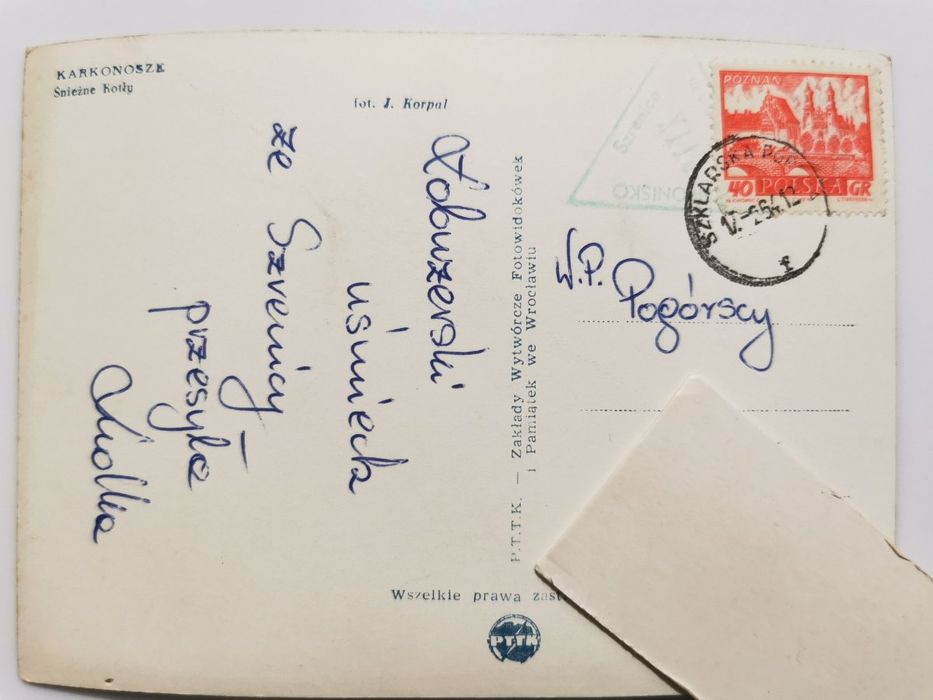 KARKONOSZE
Śnieżne Kotły
fot. J. Korpal
Łobuzerski
uśmiech
ze Szrenicy
przesyła
P.T.T.K. — Zakłady Wytwórcze Fotowidokówek
i Pamiątek we Wrocławiu
Wszelkie prawa
PTTK
POZNAŃ
40 POLSKA GR
SZKLARSKA POR
Szrenica
W.P. Pogórscy